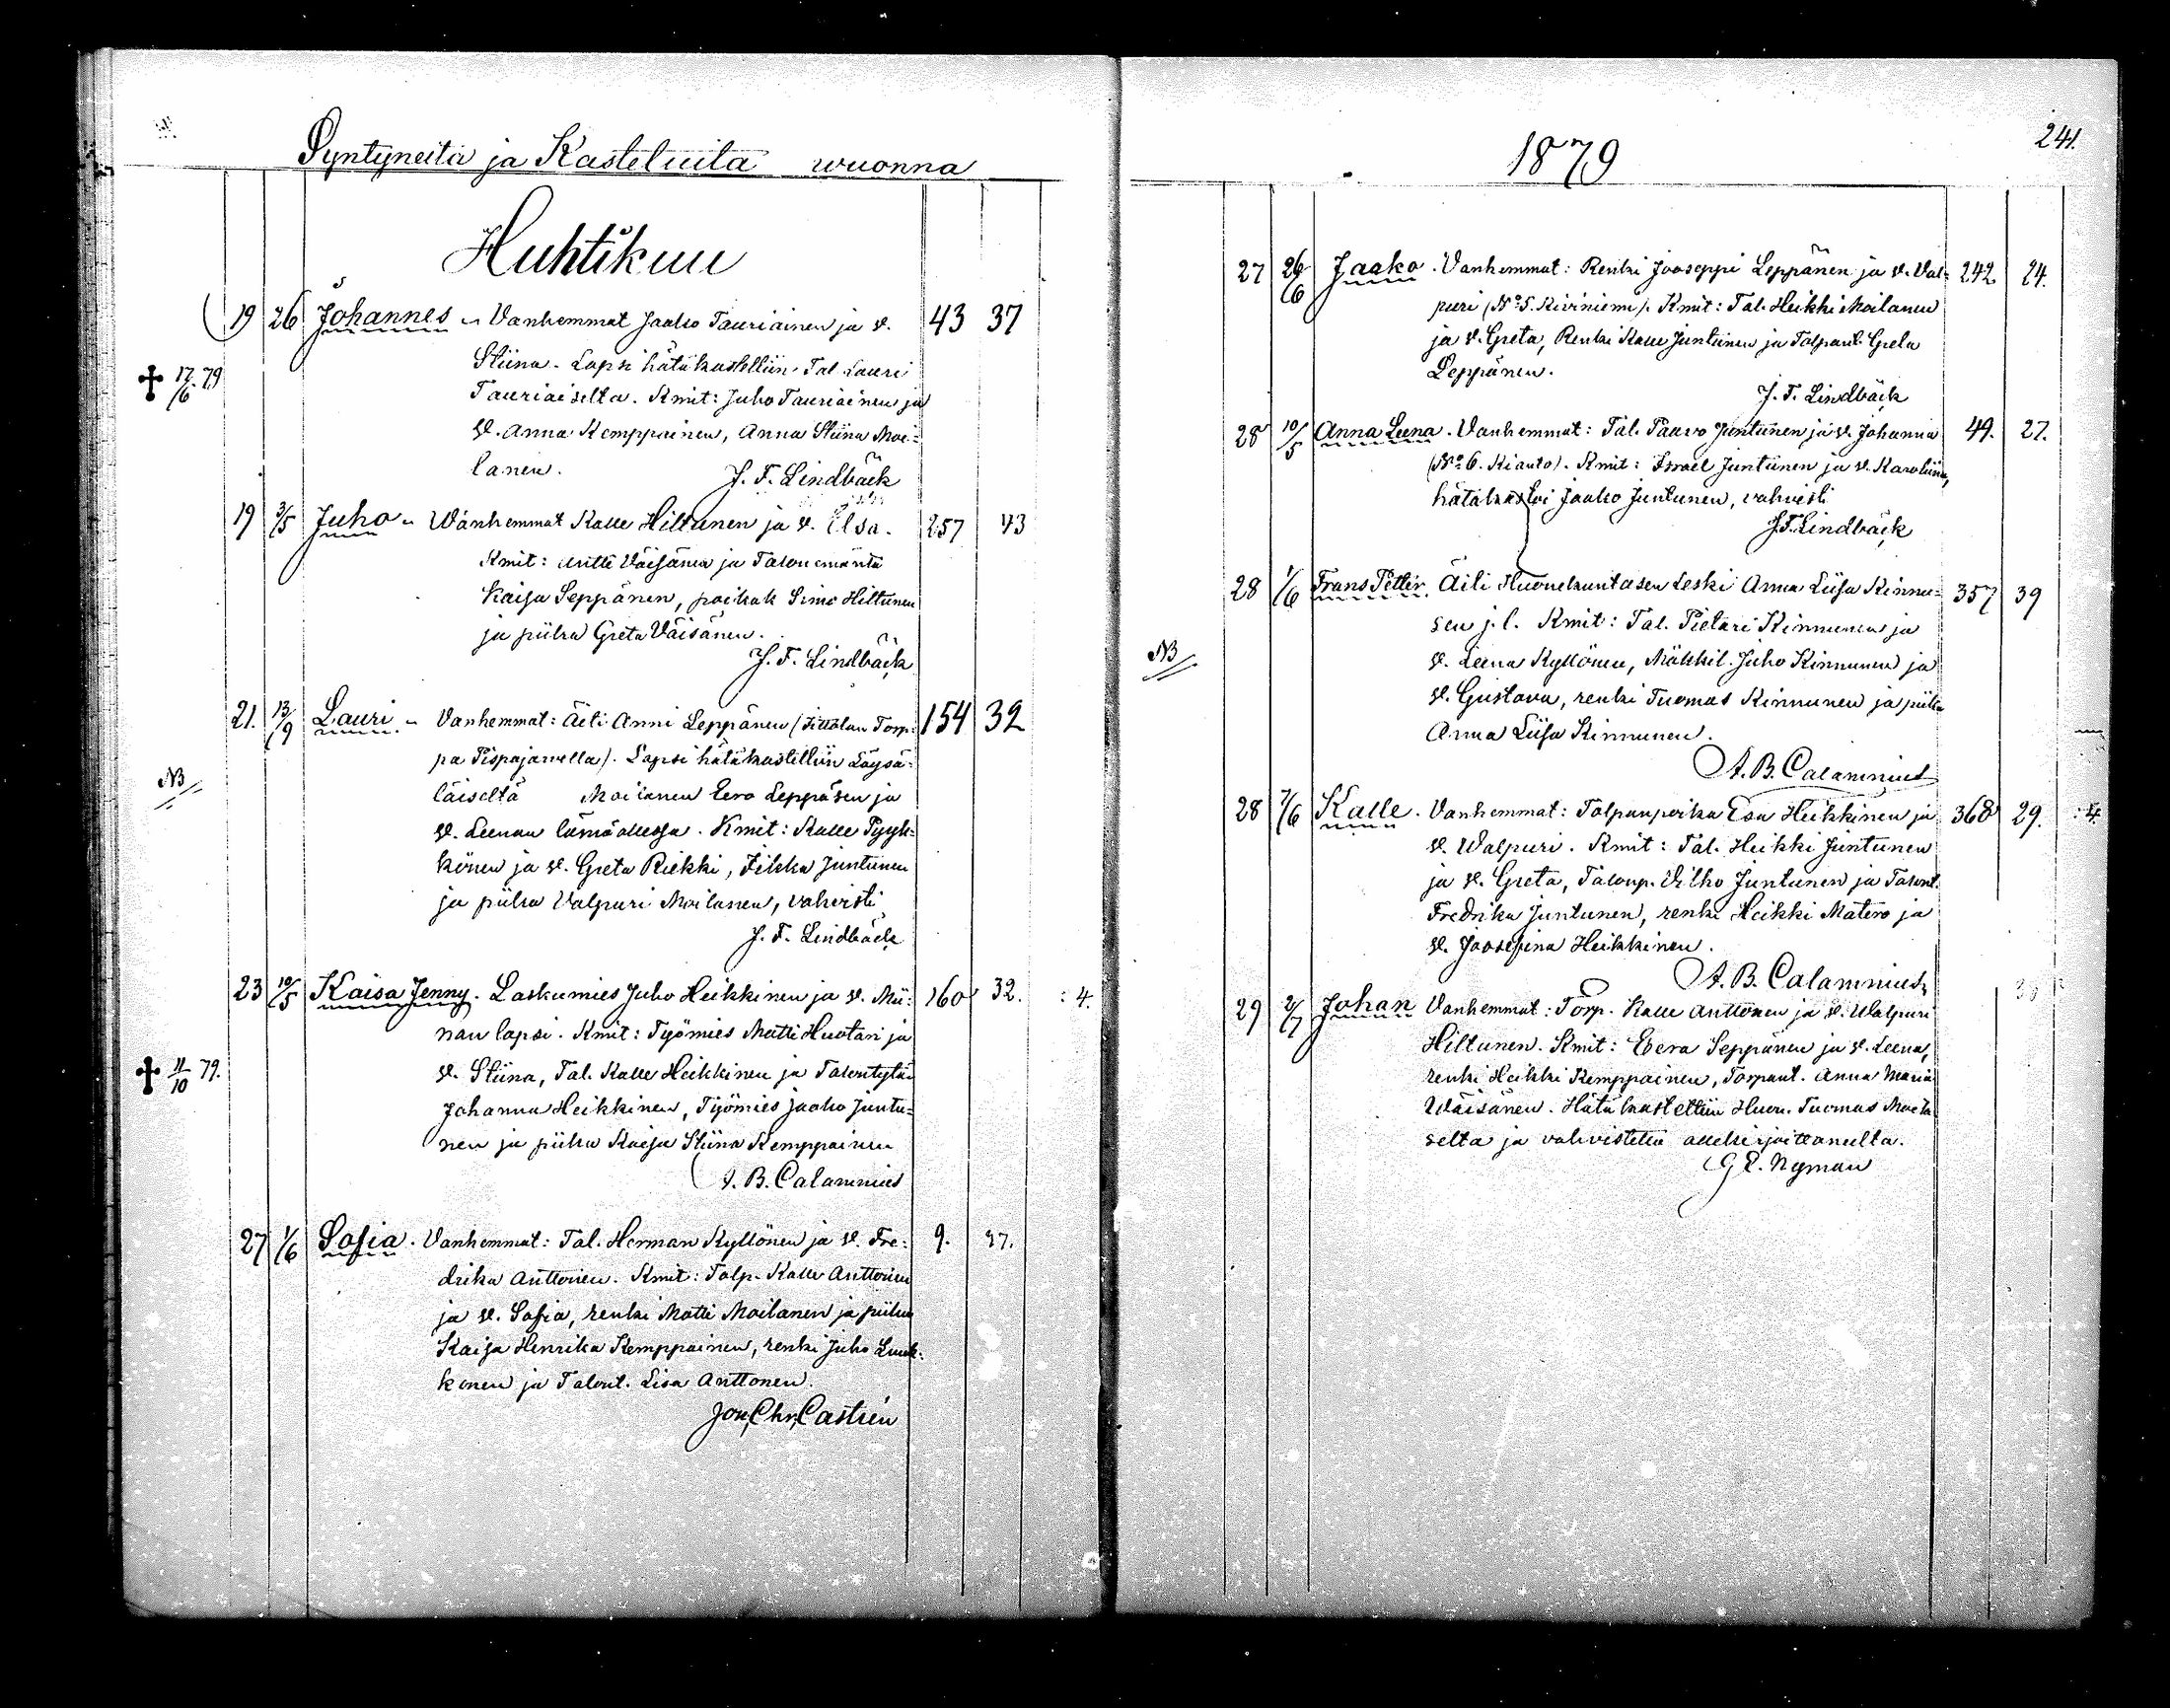 Syntyneitä ja Kasteluita wuonna
Huhtikuu
19 26 Johannes Vanhemmat Jaako Tauriainen ja v. 43 37
Stiina. Lapsi hätäkastettiin Tal. Lauri
+ 17/6 79
Tauriaiselta. Kmit: Juho Tauriainen ja
v. Anna Kemppainen, Anna Stiina Moi-
lanen.
J. F. Lindbäck
19 3/5 Juho Wanhemmat Kalle Hiltunen ja v. Elsa. 257 43
Kmit: Antti Väisänen ja Talonemäntä
Kaisa Seppänen, poikak Simo Hiltunen
ja piika Greta Väisänen.
J. F. Lindbäck
21. 13/9 Lauri Vanhemmat: Äiti Anni Leppänen (
Torp- 154 32
pa Pispajärvella). Lapsi hätäkastettiin Löysä-
NB
läiseltä Moilanen Eero Leppäsen ja
v. Leenan läsnäollessa. Kmit: Kalle Pyyk-
könen ja v. Greta Riekki, Jikka Juntunen
ja piika Valpuri Moilanen, vahvisti
J. F. Lindbäck
23 10/5 Kaisa Jenny. Laskumies Juho Heikkinen ja v. Mii- 160 32. : 4.
nan lapsi. Kmit: Työmies Matti Huotari ja
+ 11/10 79.
v. Stiina, Tal. Kalle Heikkinen ja Talontytär
Johanna Heikkinen, Työmies Jaako Juntu-
nen ja piika Kaisa Stiina Kemppainen
A. B. Calamnius
27 1/6 Sofia. Vanhemmat: Tal. Herman Kyllönen ja v. Fre- 9. 37.
drika Anttonen. Kmit: Talp. Kalle Anttonen
ja v. Sofia, renki Matti Moilanen ja piika
Kaisa Henrika Kemppainen, renki Juho Luuk-
konen ja Talont. Lisa Anttonen.
Jon. Chr. Castrén
1879
241.
27 26/6 Jaako. Vanhemmat: Renki Jooseppi Leppänen ja v. Val- 242 24.
puri (No 5. Kiviniemi). Kmit: Tal. Heikki Moilanen
ja v. Greta, Renki Kalle Juntunen ja Talpant. Greta
Leppänen.
J. F. Lindbäck
28 10/5 Anna Leena. Vanhemmat: Tal. Paavo Juntunen ja v. Johanna 49. 27.
(No 6. Kianto). Kmit: Israel Juntunen ja v. Karoliina,
hätäkastoi Jaako Juntunen, vahvisti
J. F. Lindbäck
28 1/6 Frans Petter. Äiti Huonekuntasen Leski Anna Liisa Kinnu- 357 39
sen j. l. Kmit: Tal. Pietari Kinnunen ja
NB
v. Leena Kyllönen, Mäkkil. Juho Kinnunen ja
v. Gustava, renki Tuomas Kinnunen ja piika
Anna Liisa Kinnunen.
A. B. Calamnius
28 7/6 Kalle. Vanhemmat: Talpanpoika Esa Heikkinen ja 368 29. : 4.
v. Walpuri. Kmit: Tal. Heikki Juntunen
ja v. Greta, Talonp. Vilho Juntunen ja Talont.
Fredrika Juntunen, renki Heikki Matero ja
v. Joosefina Heikkinen.
A. B. Calamnius
29 2/7 Johan Vanhemmat: Torp. Kalle Anttonen ja v. Walpuri
Hiltunen. Kmit: Eera Seppänen ja v. Leena,
renki Heikki Kemppainen, Torpant. Anna Maria
Wäisänen. Hätäkastettiin Huon. Tuomas Moila-
selta ja vahvistettu allekirjoittaneelta.
G E. Nyman